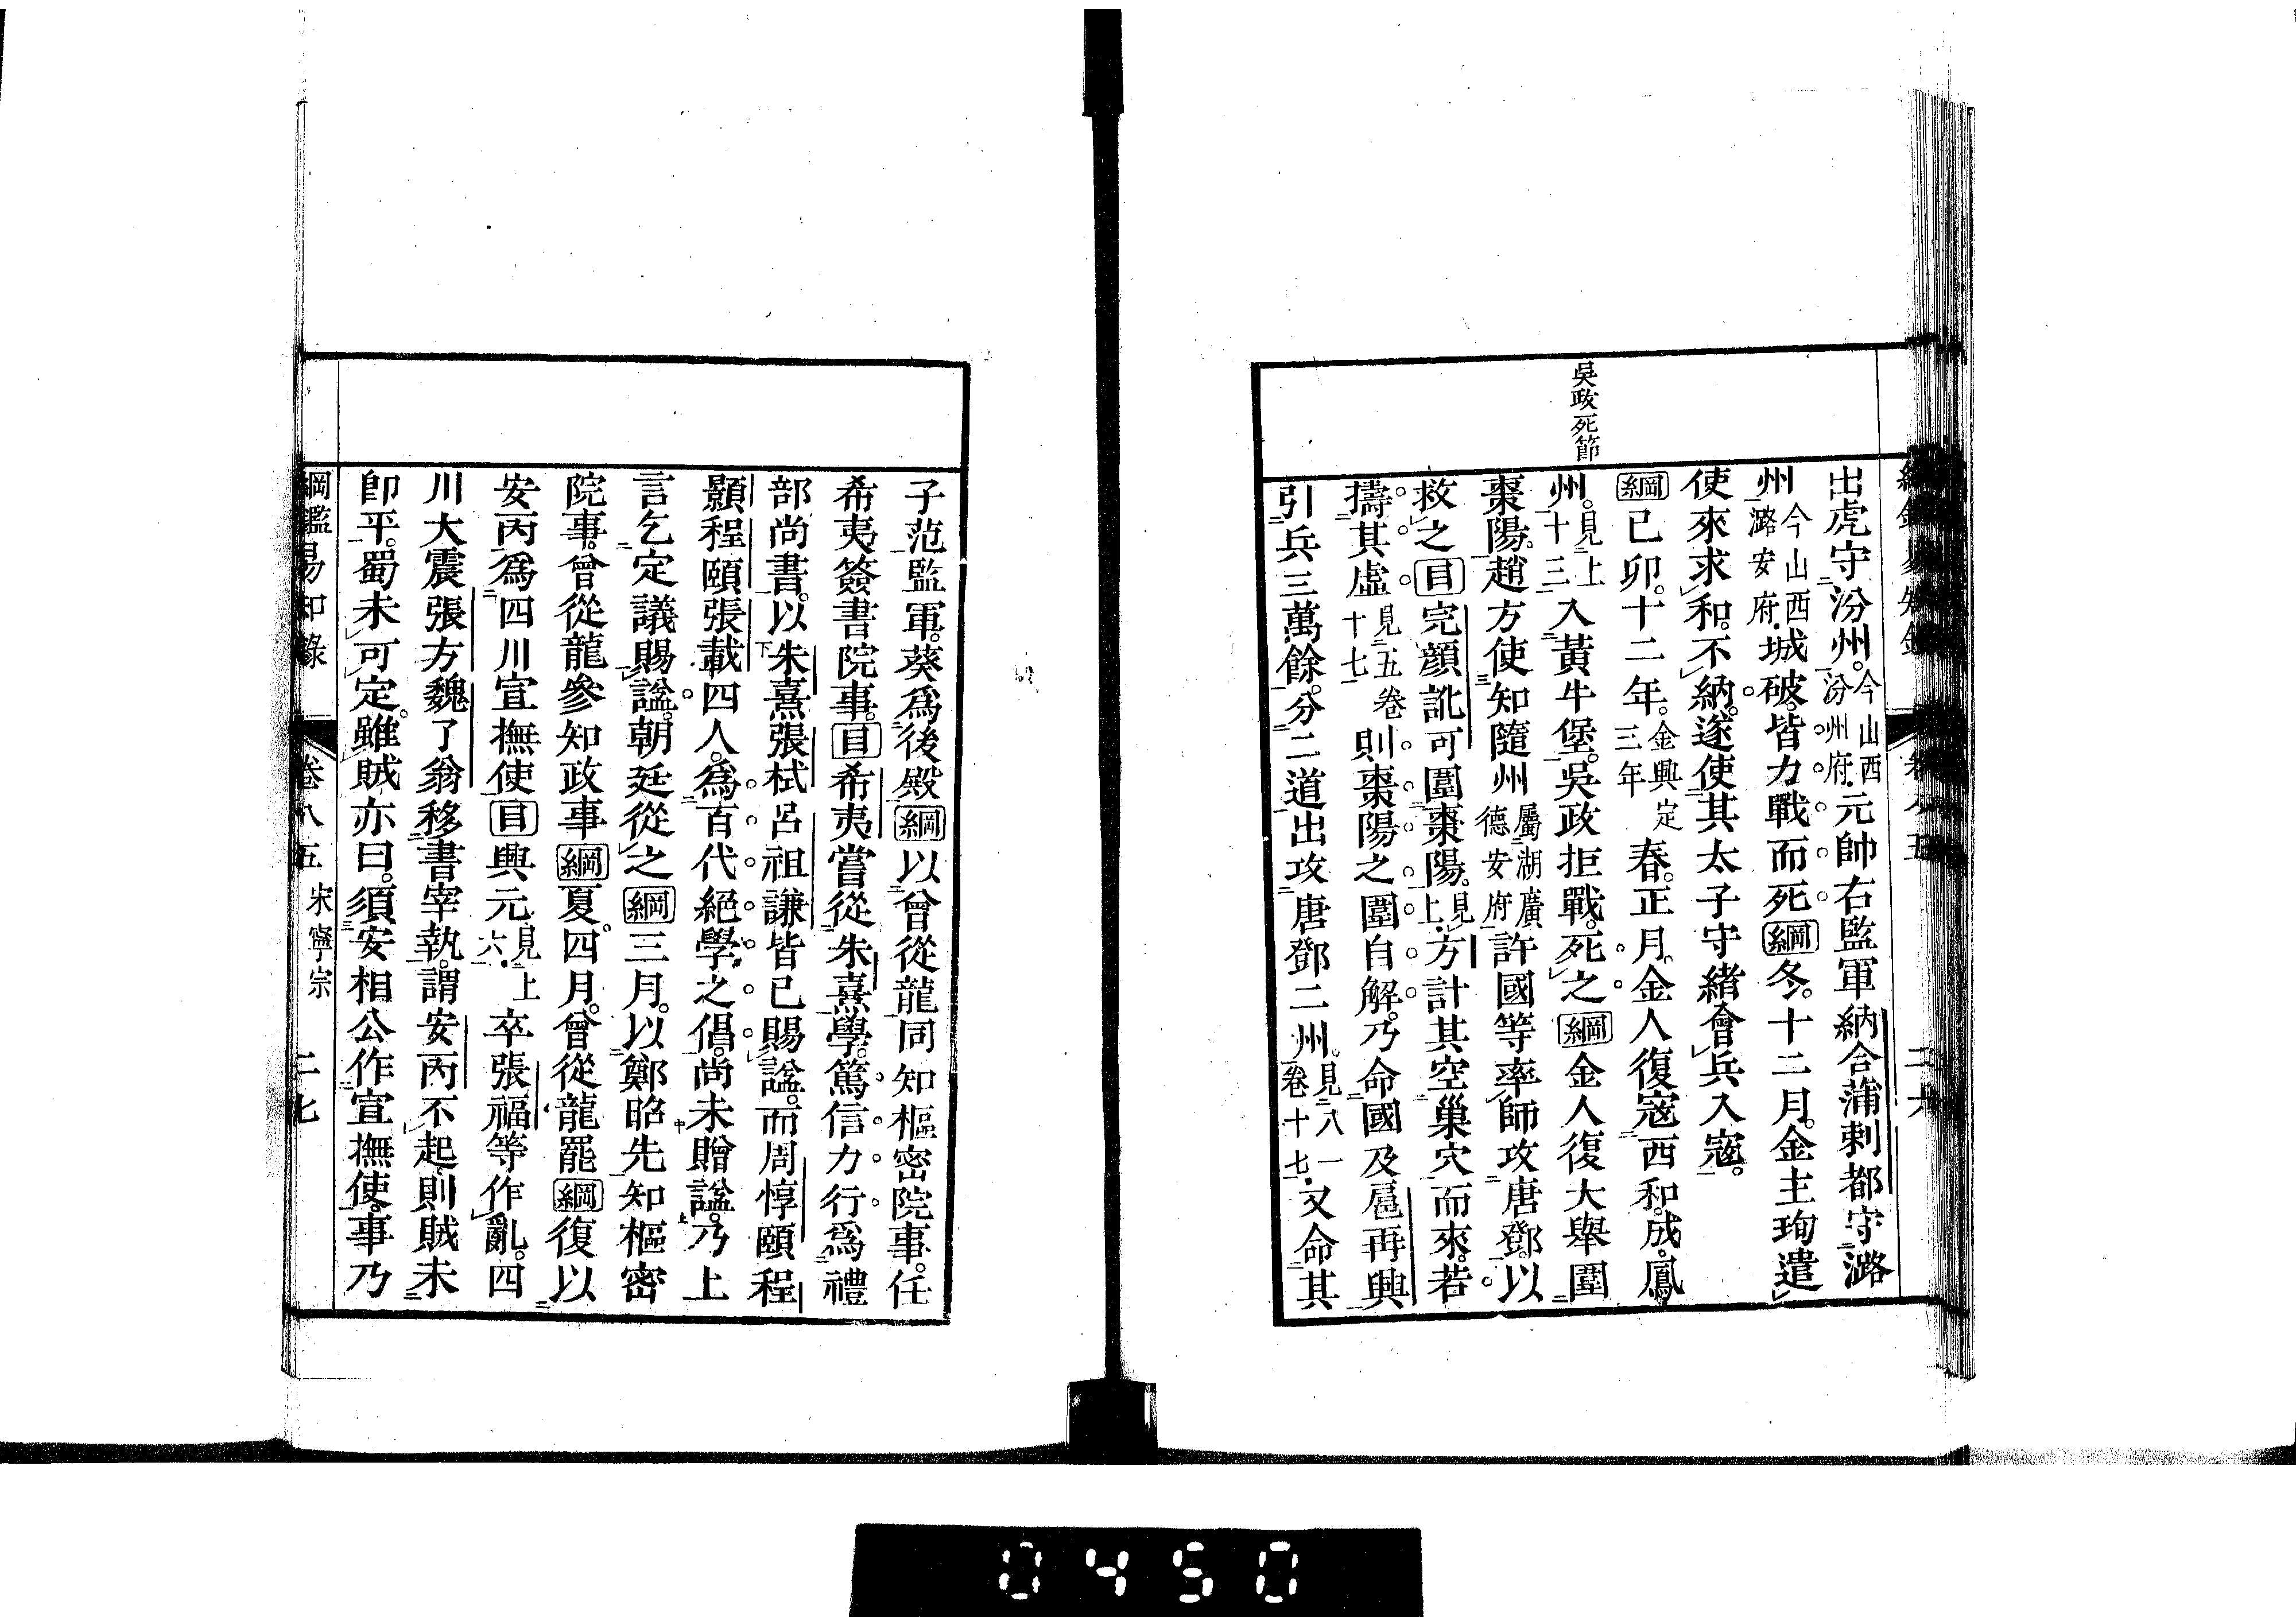 吳政死節
出虎守汾州。今山西汾州府.元帥右監軍納合蒲剌都守潞
州今山西潞安府.城破。皆力戰而死綱冬。十二月。金主珣遣
使來求和。不納。遂使其太子守緒會兵入寇。
綱己卯。十二年。金興定三年春。正月。金人復寇西和。成。鳳
州。見上十三入黃牛堡。吳政拒戰。死之綱金人復大舉圍
棗陽。趙方使知隨州屬湖廣德安府許國等率師攻唐鄧。以
救之目完顏訛可圍棗陽。見上.方計其空巢穴而來。若
擣其虛見五卷十七則棗陽之圍自解。乃命國及扈再興
引兵三萬餘。分二道出攻唐鄧二州。見八一卷十七.又命其
子范監軍。葵爲後殿綱以曾從龍同知樞密院事。任
希夷簽書院事。目希夷嘗從朱熹學。篤信力行爲禮
部尚書。以朱熹張栻呂祖謙皆已賜諡。而周惇頤程
顥程頤張載四人。爲百代絕學之倡。尚未贈諡。乃上
言乞定議賜諡。朝廷從之綱三月。以鄭昭先知樞密
院事。曾從龍參知政事綱夏。四月。曾從龍罷綱復以
安丙爲四川宣撫使目興元見上六.卒張福等作亂。四
川大震張方魏了翁移書宰執。謂安丙不起。則賊未
卽平。蜀未可定。雖賊亦曰。須安相公作宣撫使。事乃
綱鑑易知錄 卷八五 宋寧宗 二七